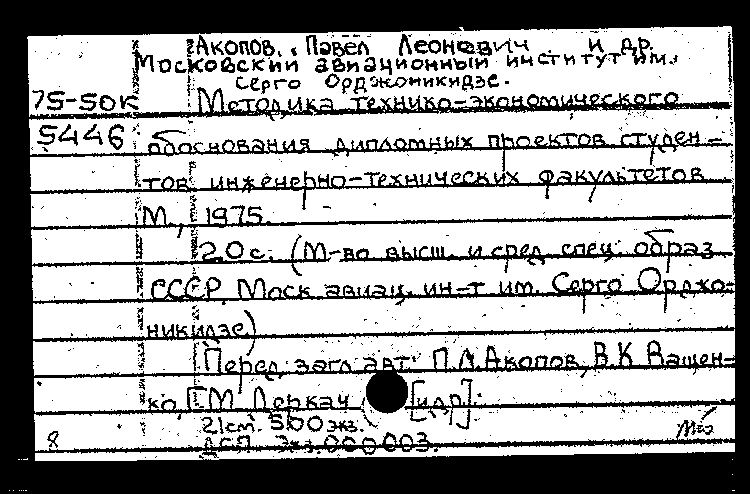 Акопов, Павел Леонович и др.
Московский авиационный институт им.
Серго Орджоникидзе.
75-50к Методика технико-экономического
5446 обоснования дипломных проектов студен-
тов инженерно-технических факультетов
М., 1975.
20с. (М-во высш. и сред. спец. образ.
СССР. Моск. авиац. ин-т им. Серго Орджо-
никидзе)
Перед загл. авт: П.Л. Акопов, В.К. Ващен-
ко, Г.М. Деркач [и др].
21см. 500 экз.
8 ДСП. Экз. 000003.